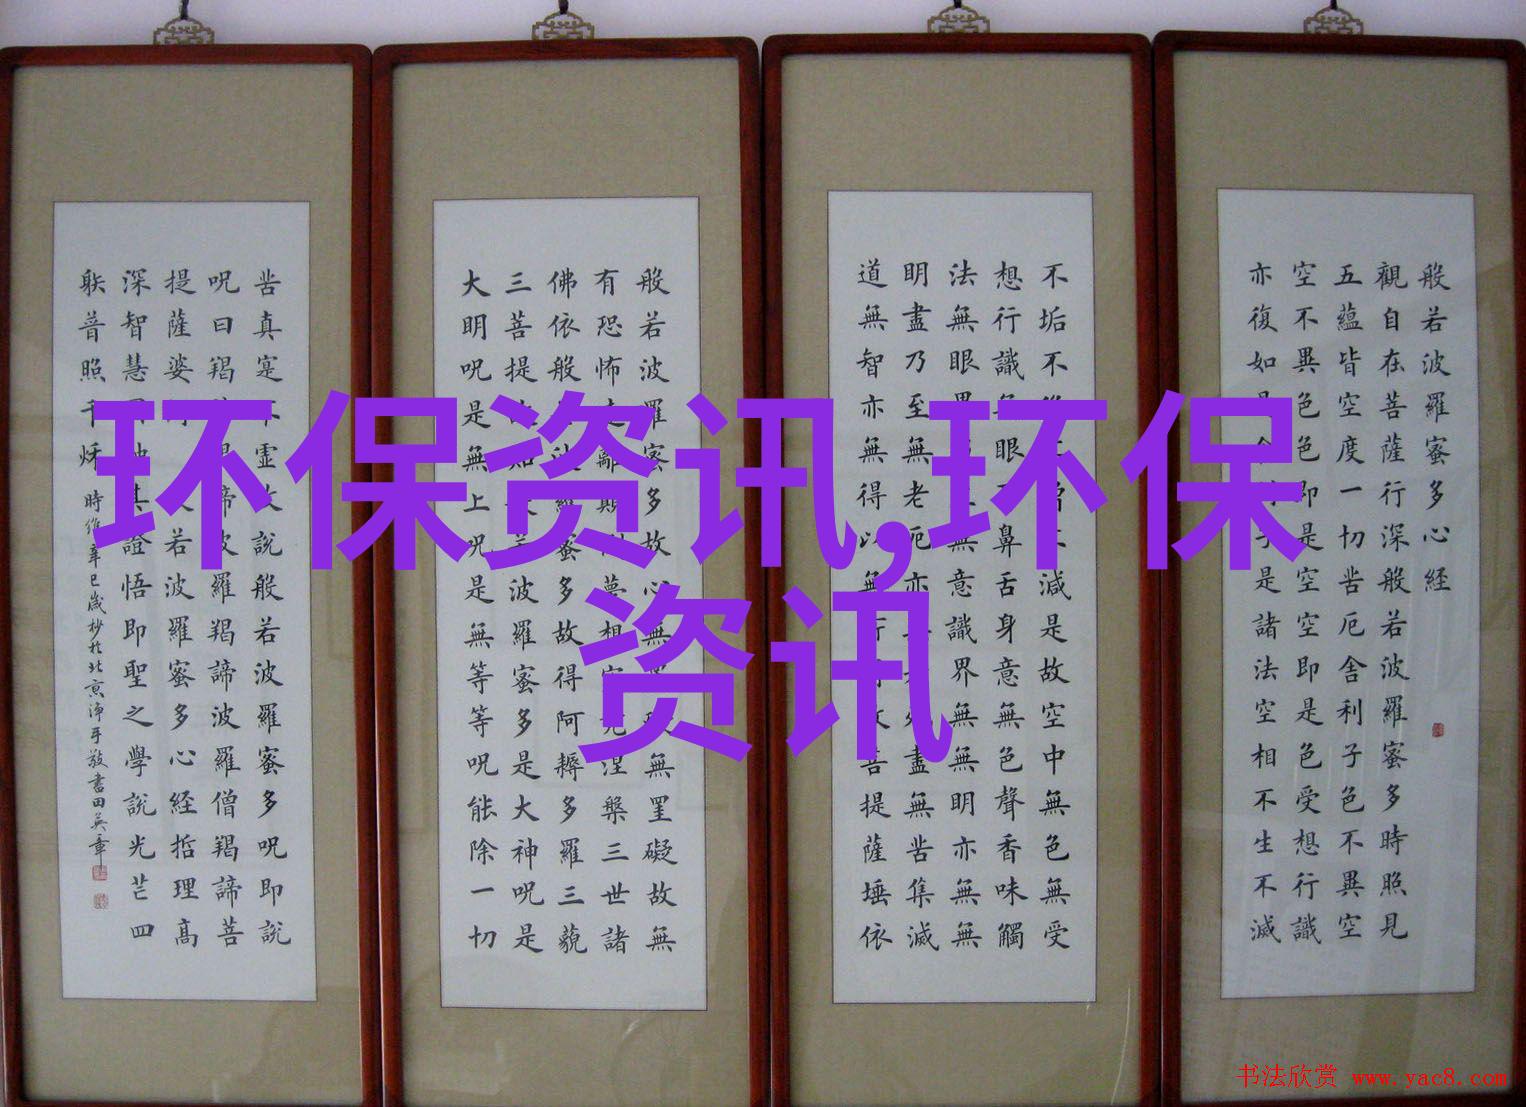 般若波羅蜜多心経
觀自在菩薩行深般若波羅蜜多時照見
五蘊皆空度一切苦厄舍利子色不異空
空不異色色即是空空即是色受想行識
亦復如是子是諸法空相不生不滅
不垢不減是故空中無色無受
想行識無眼鼻舌身意無色聲香味觸
法無眼界無意識界無無明亦無無
明盡乃至無老亦盡無苦集滅
道無智亦無得以無故菩提薩埵依
般若波羅蜜多故心無無罣礙故無
有恐怖離夢想涅槃三世諸
佛依般波羅蜜多故得阿耨多羅三藐
三菩提波羅蜜多是大神呪是
大明呪是無上呪是無等等呪能除一切
苦真寔不虛故說般若波羅蜜多呪即説
呪曰羯諦波羅羯諦波羅僧羯諦菩
提薩婆若波羅蜜多心経哲理高
深智慧其證悟即聖之學説光芒四
躲普照千秌
時維辛巳歲杪於北京平敬書田英章
环保资讯,环保
资讯
书法欣赏 www.yac8.com